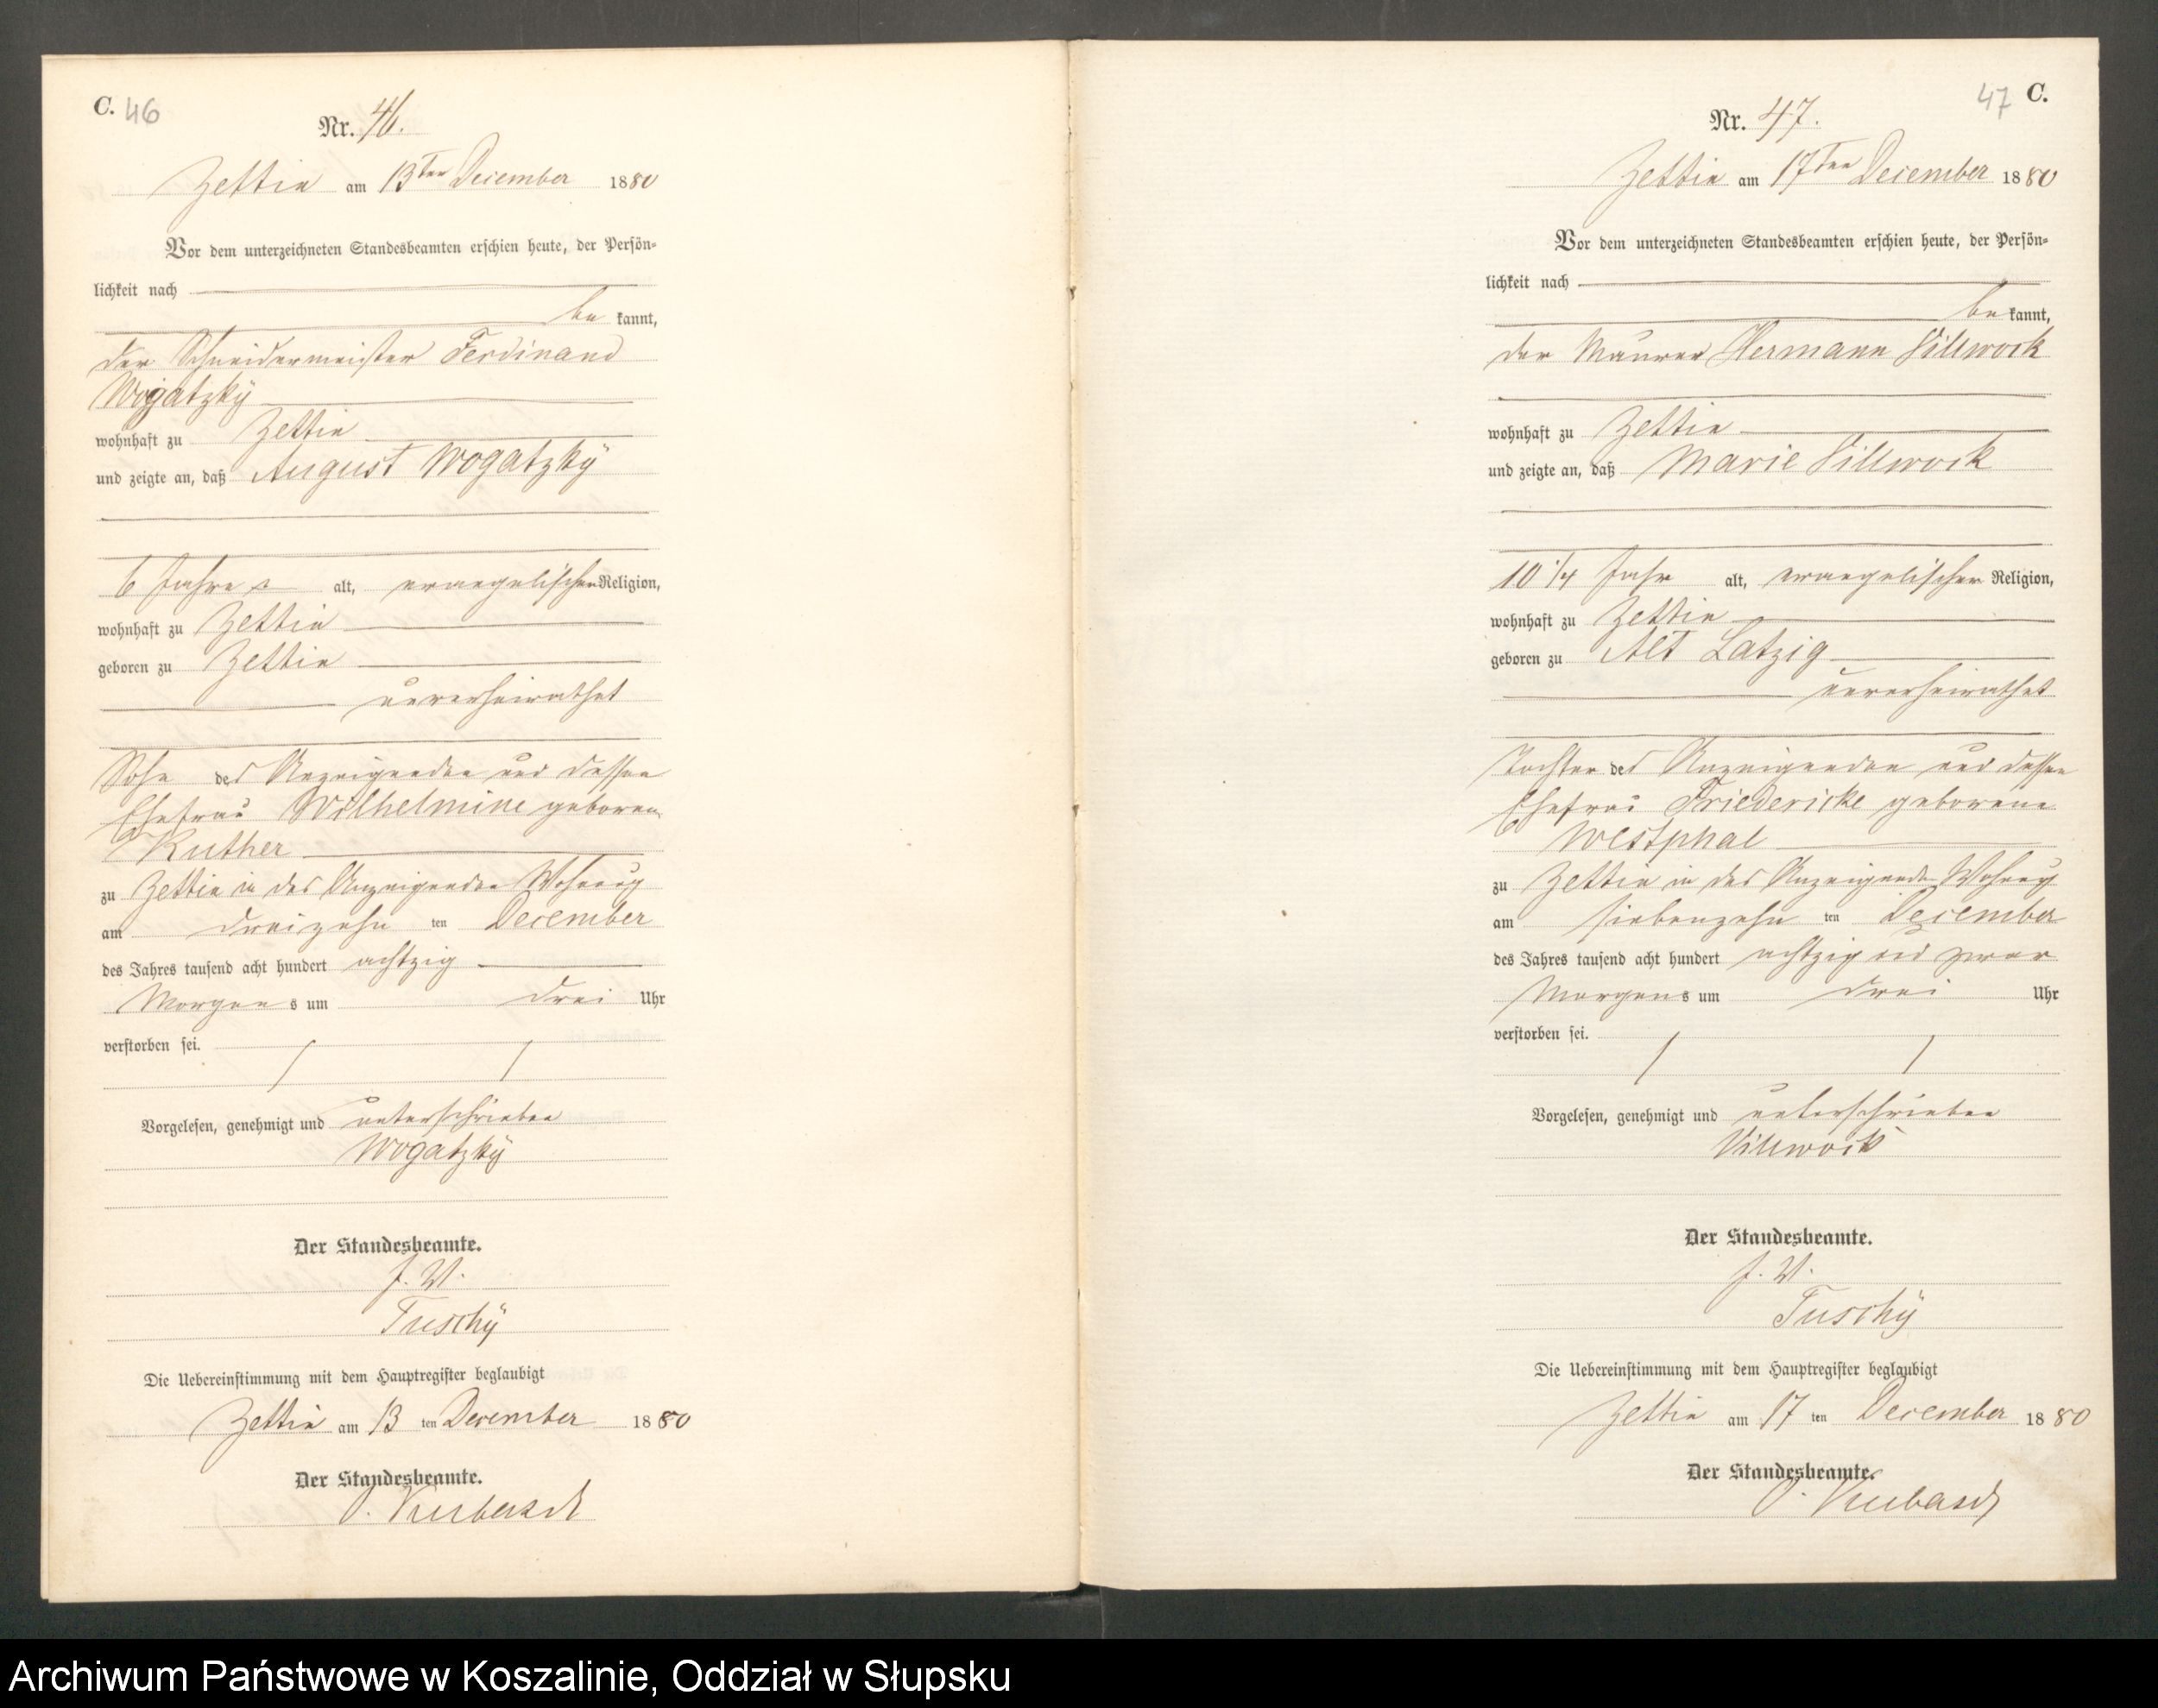 C. 46
Nr. 46.
Zettin am 13ten December 1880
Vor dem unterzeichneten Standesbeamten erschien heute, der Persön-
lichkeit nach
be kannt,
der Schneidermeister Ferdinand
Wogatzky
wohnhaft zu Zettin
und zeigte an, daß August Wogatzky
6 Jahre alt, evangelischer Religion,
wohnhaft zu Zettin
geboren zu Zettin
unverheirathet
Sohn des Anzeigenden und dessen
Ehefrau Wilhelmine geboren
Kuther
zu Zettin in des Anzeigenden Wohnung
am dreizehn ten December
des Jahres tausend acht hundert achtzig
Morgens um drei Uhr
verstorben sei.
Vorgelesen, genehmigt und unterschrieben
Wogatzky
Der Standesbeamte.
J. V.
Tuschy
Die Uebereinstimmung mit dem Hauptregister beglaubigt
Zettin am 13 ten December 1880
Der Standesbeamte.
47 C.
Nr. 47.
Zettin am 17ten December 1880
Vor dem unterzeichneten Standesbeamten erschien heute, der Persön-
lichkeit nach
be kannt,
der Maurer Hermann Villwock
wohnhaft zu Zettin
und zeigte an, daß Marie Villwock
10 1/4 Jahr alt, evangelischer Religion,
wohnhaft zu Zettin
geboren zu Alt Latzig
unverheirathet
Tochter des Anzeigenden und dessen
Ehefrau Friedericke geborene
Westphal
zu Zettin in des Anzeigenden Wohnung
am siebenzehn ten December
des Jahres tausend acht hundert achtzig und zwar
Morgens um drei Uhr
verstorben sei.
Vorgelesen, genehmigt und unterschrieben
Villwock
Der Standesbeamte.
J. V.
Tuschy
Die Uebereinstimmung mit dem Hauptregister beglaubigt
Zettin am 17 ten December 1880
Der Standesbeamte.
Archiwum Państwowe w Koszalinie, Oddział w Słupsku